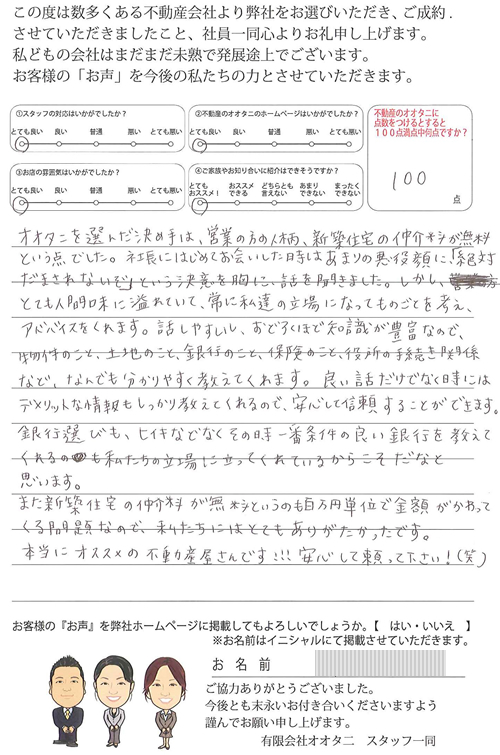 この度は数多くある不動産会社より弊社をお選びいただき、ご成約.
させていただきましたこと、社員一同心よりお礼申し上げます。
私どもの会社はまだまだ未熟で発展途上でございます。
お客様の「お声」を今後の私たちの力とさせていただきます。
①スタッフの対応はいかがでしたか?
とても良い 良い 普通 悪い とても悪い
②不動産のオオタニのホームページはいかがでしたか?
とても良い 良い 普通 悪い とても悪い
③お店の雰囲気はいかがでしたか?
とても良い 良い 普通 悪い とても悪い
④ご家族やお知り合いに紹介はできそうですか?
とてもオススメ! オススメできる どちらとも言えない あまりできない まったくできない
不動産のオオタニに
点数をつけるとすると
100点満点中何点ですか?
100
点
オオタニを選んだ決め手は、営業の方の人柄、新築住宅の仲介料が無料
という点でした。社長にはじめてお会いした時はあまりの悪役顔に、「絶対
だまされないぞ」という決意を胸に、話を聞きました。しかし、
とても人間味に溢れていて、常に私達の立場になってものごとを考え、
アドバイスをくれます。話しやすいし、おどろくほど知識が豊富なので、
物件のこと、土地のこと、銀行のこと、保険のこと、役所の手続き関係
など、なんでも分かりやすく教えてくれます。良い話だけでなく時には
デメリットな情報もしっかり教えてくれるので、安心して信頼することができます。
銀行選びも、ヒイキなどでなくその時一番条件の良い銀行を教えて
くれるのも私たちの立場に立ってくれているからこそだなと
思います。
また新築住宅の仲介料が無料というのも百万円単位で金額がかわって
くる問題なので、私たちにはとてもありがたかったです。
本当にオススメの不動産屋さんです!!!安心して頼って下さい!(笑)
お客様の『お声』を弊社ホームページに掲載してもよろしいでしょうか。【 はい・いいえ 】
※お名前はイニシャルにて掲載させていただきます。
お 名 前
ご協力ありがとうございました。
今後とも末永いお付き合いくださいますよう
謹んでお願い申し上げます。
有限会社オオタニ スタッフ一同